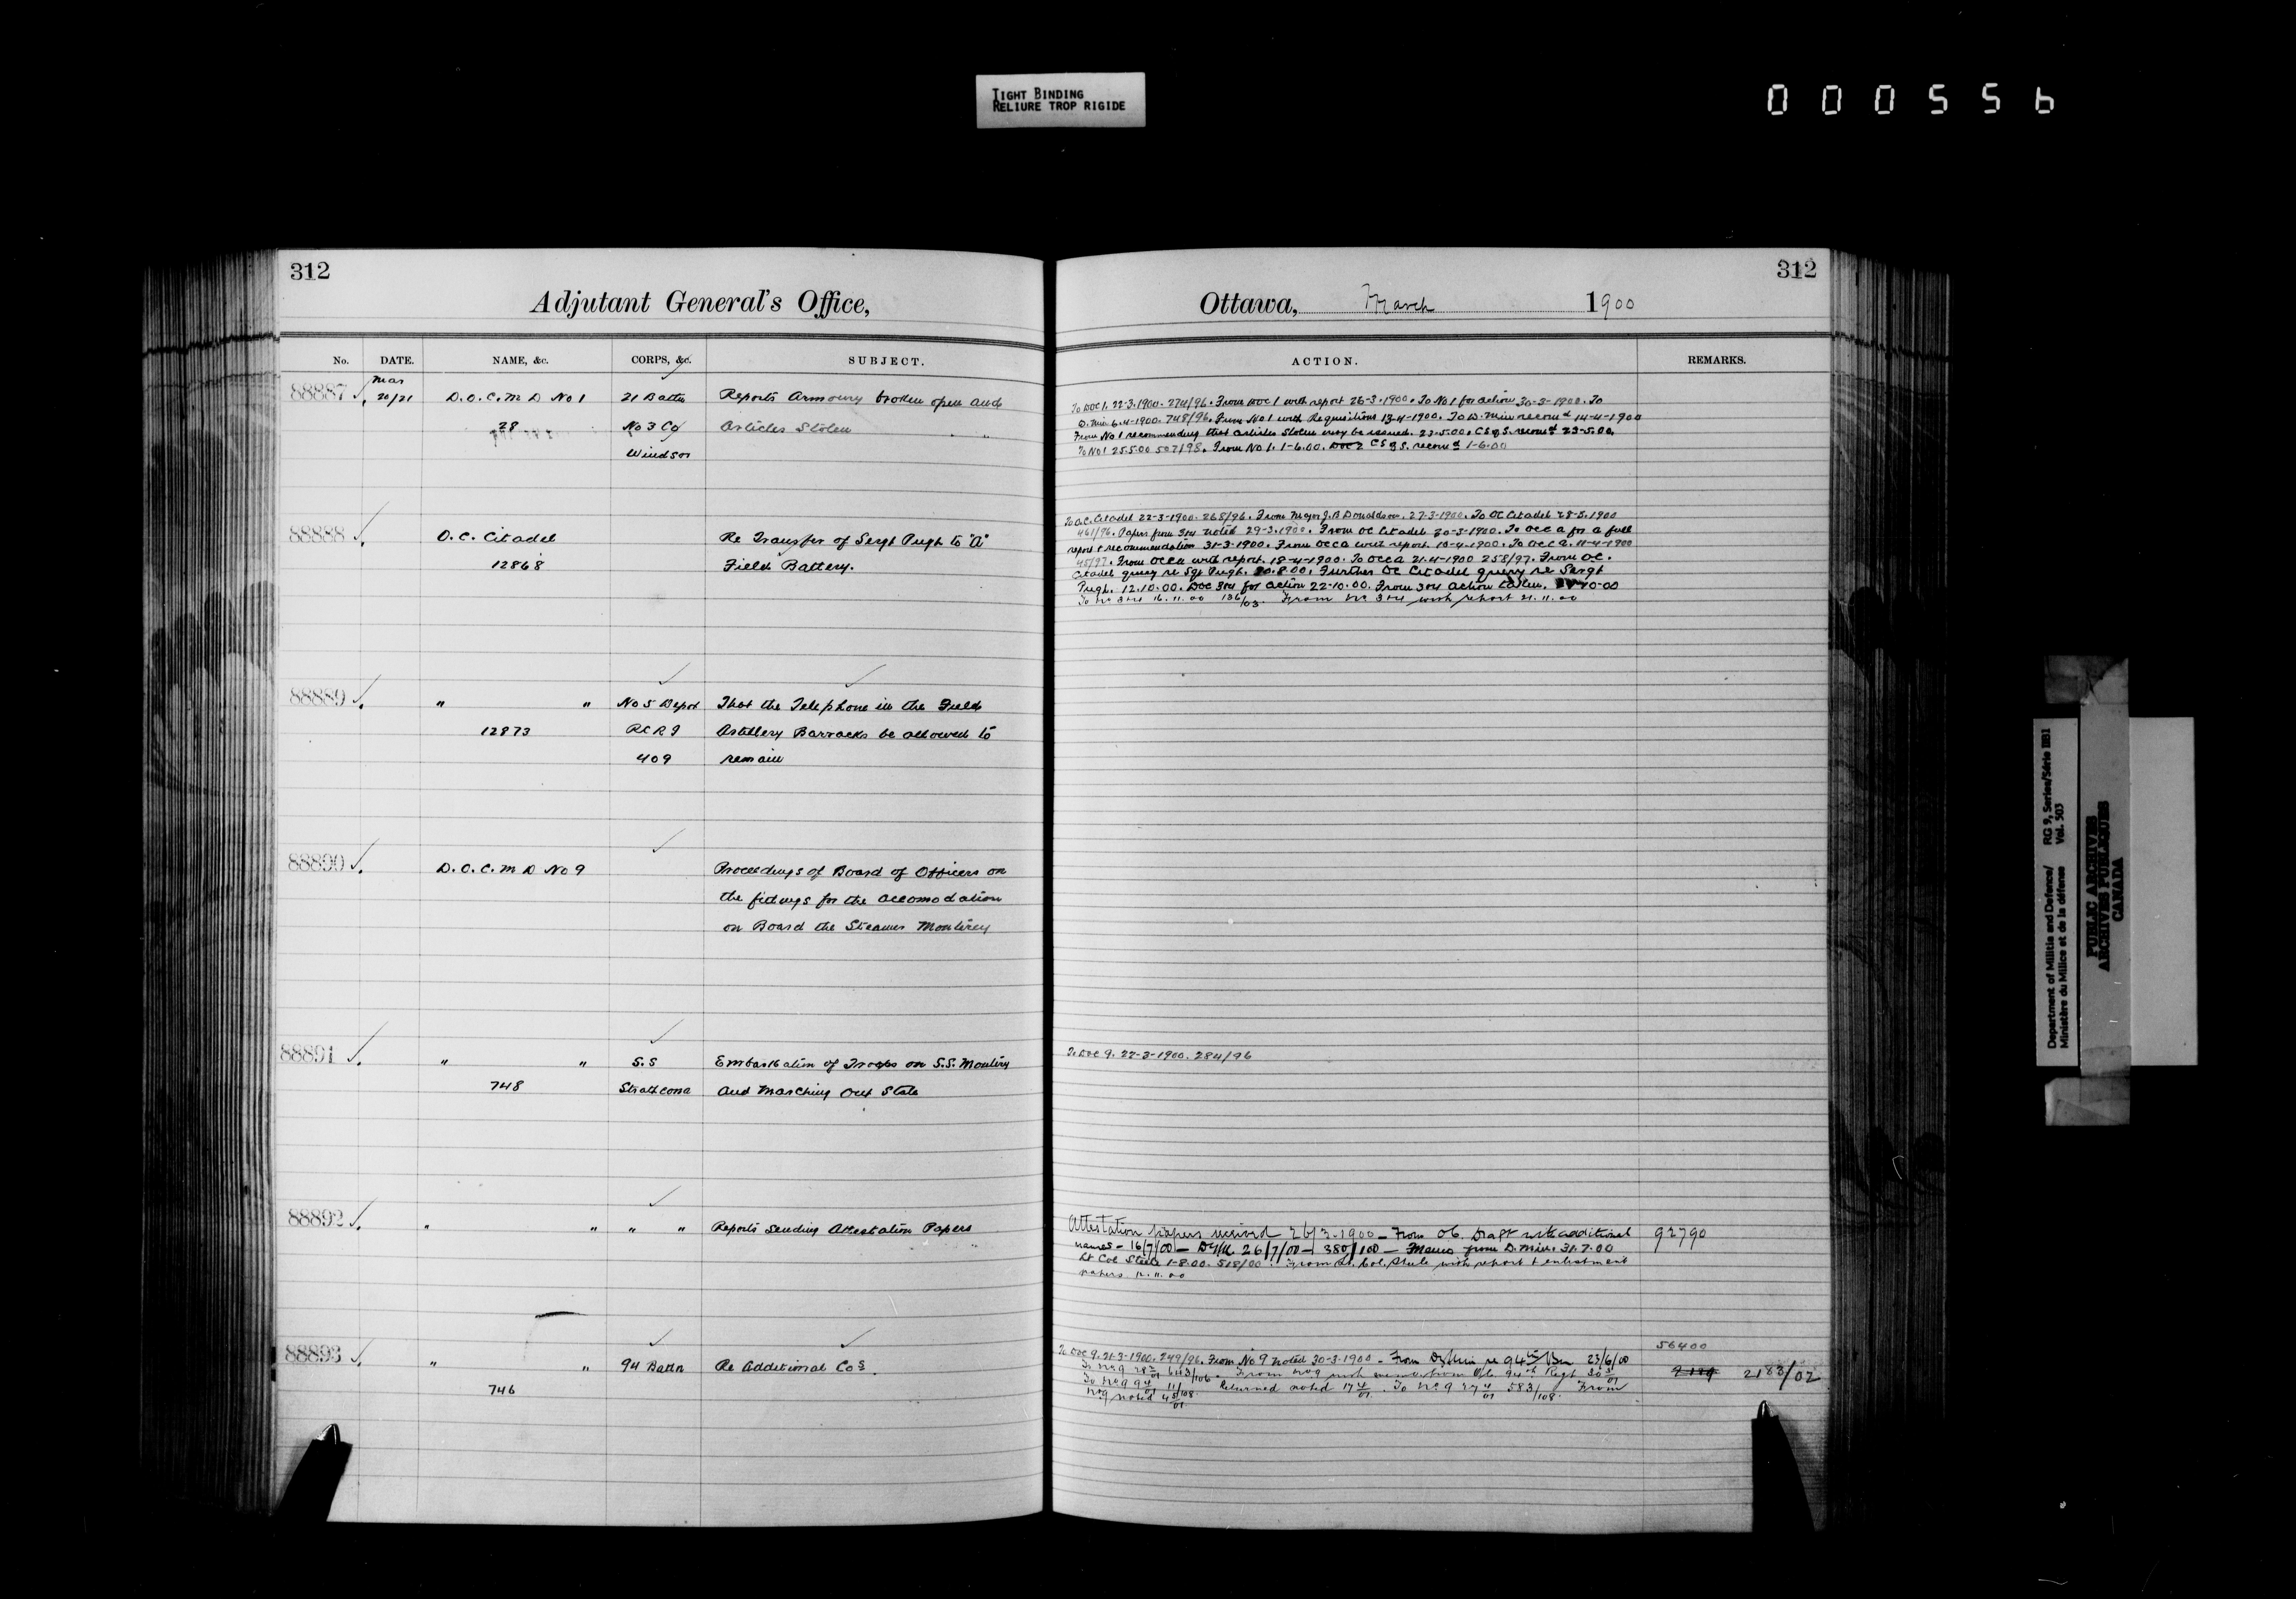 TIGHT BINDING
RELIURE TROP RIGIDE
000556
312
Adjutant General's Office,
No. DATE. NAME, &c. CORPS, &c. SUBJECT.
88887 Mar 20/21 D.O.C. M D No 1 21 Battn Reports Armoury broken open and
28 No 3 Co/ Articles Stolen
Windsor
88888 O.C. Citadel Re Transfer of Sergt Pugh to "A"
12868 Field Battery.
88889 " " No 5 Depot That the Telephone in the Field
12873 RCRI Artillery Barracks be allowed to
409 remain
88890 D.O.C. M D No 9 Proceedings of Board of Officers on
the fidings for the accomodation
on Board the Steamer Monterey
88891 " " S.S Embarkation of Troops on S.S. Montery
748 Strathcona and Marching Out State
88892 " " " " Reports sending Attestation Papers
88893 " " 94 Battn Re Additional Cos.
746
312
Ottawa, March 1900
ACTION. REMARKS.
To DOC 1. 22-3-1900. 274/96. From DOC 1 with report 26-3-1900. To No 1 for action 30-3-1900. To
D. Min 6-4-1900. 748/96. From No 1 with Requisitions 13-4-1900. To D. Min recomd 14-4-1900
From No 1 recommending that articles stolen may be issued. 23-5.00. CS of S. recomd 23-5.00.
To No 1 25.5.00 507/98. From No 1. 1-6.00. CS of S. recomd 1-6.00
To O.C. Citadel 22-3-1900. 268/96. From Major J.B Donaldson. 27-3-1900. To OC Citadel 28-3.1900
461/96. Papers from 3&4 noted 29-3.1900. From OC Citadel 30-3-1900. To OCCA for a full
report & recommendation 31-3-1900. From OCCA with report. 10-4-1900. To OCCA. 11-4-1900
45/97. From OCCA with report. 18-4-1900. To OCCA 21-4-1900 258/97. From OC.
Citadel query re Sgt Pugh. 20.8.00. Further OC Citadel query re Sergt
Pugh. 12.10.00. DOC 3&4 for action 22-10.00. From 3&4 action taken. 10-00
To No 3&4 16.11.00 136/03. From No 3&4 with report 21.11.00
To DOC 9. 22-3-1900. 284/96
Attestation papers received 26/3.1900 – From OC. Draft with additional 92790
names – 16/7/00 – 26/7/00 – 380/100 – Memo from D. Min. 31.7.00
Lt Col Steele 1-8.00. 518/00. From Lt. Col. Steele with report & enlistment
papers 12.11.00
56400
To DOC 9. 21-3-1900. 249/96. From No 9 noted 30-3-1900 – From re 94th Bn 23/6/00
2183/02
To No 9 643/106. From No 9 with memo from O/C. 94th Regt
To No 9 11/108. Returned noted 17 4/01. To No 9 583/108. From
No 9 noted
Department of Militia and Defence/ RG 9, Series/Série IIB1
Ministère du Milice et de la défense Vol. 503
PUBLIC ARCHIVES
ARCHIVES PUBLIQUES
CANADA